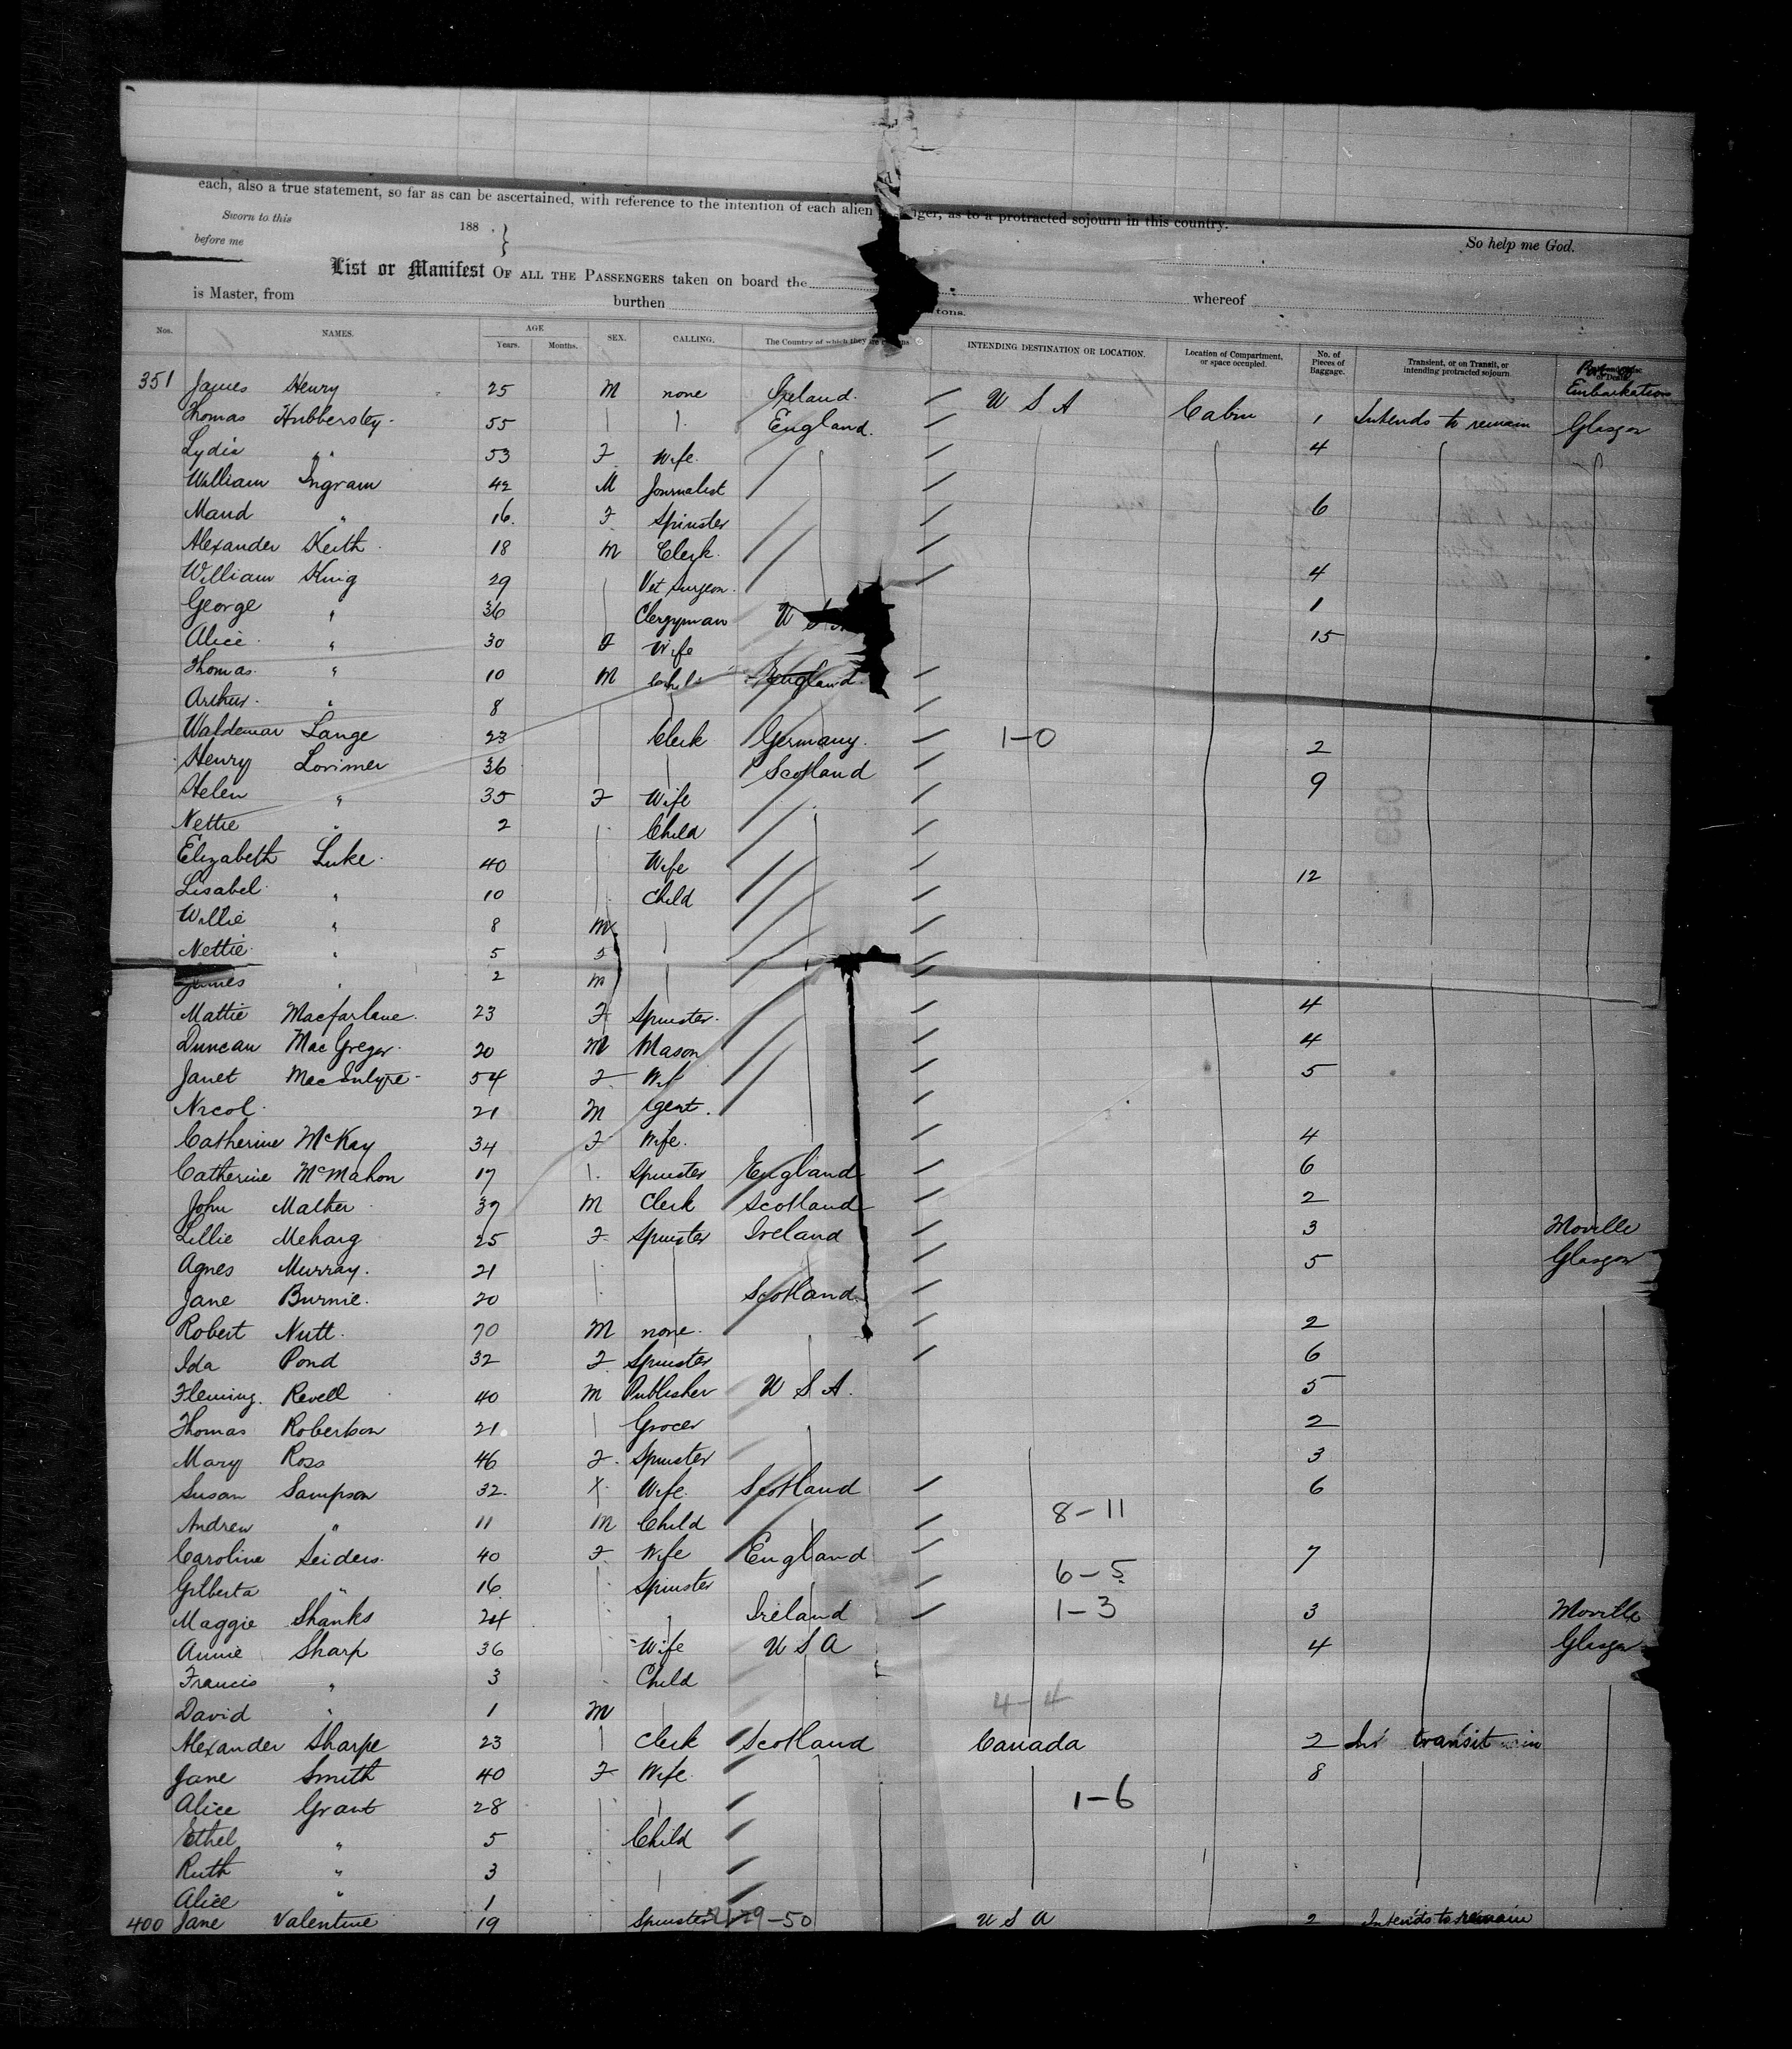 each, also a true statement, so far as can be ascertained, with reference to the intention of each alien nger, as to a protracted sojourn in this country.
Sworn to this 188 . }
before me So help me God.
List or Manifest OF ALL THE PASSENGERS taken on board the
is Master, from burthen tons. whereof
Nos. NAMES. AGE Years. Months. SEX. CALLING. The Country of which they are INTENDING DESTINATION OR LOCATION. Location of Compartment, or space occupied. No. of Pieces of Baggage. Transient, or on Transit, or intending protracted sojourn. Embarkation
351 James Henry 25 M none Ireland. / U S A Cabin 1 Intends to remain Glasgow
Thomas Hubberstey 55 England. /
Lydia " 53 F Wife / 4
William Ingram 42 M Journalist /
Maud " 16 F Spinster / 6
Alexander Keith 18 M Clerk /
William King 29 Vet Surgeon / 4
George " 36 Clergyman U S 1
Alice " 30 F Wife 15
Thomas " 10 M Child England /
Arthur " 8 /
Waldemar Lange 23 Clerk Germany / 1-0 2
Henry Lorimer 36 Scotland / 9
Helen " 35 F Wife /
Nettie " 2 Child /
Elizabeth Luke 40 Wife / 12
Lisabel " 10 Child /
Willie " 8 M /
Nettie " 5 /
James " 2 M /
Mattie Macfarlane 23 F Spinster / 4
Duncan MacGregor 20 M Mason / 4
Janet MacIntyre 54 F / 5
Nicol 21 M gent. /
Catherine McKay 34 F Wife / 4
Catherine McMahon 17 Spinster England / 6
John Mather 37 M Clerk Scotland / 2
Lillie Meharg 25 F Spinster Ireland / 3 Moville
Agnes Murray 21 / 5 Glasgow
Jane Burnie 20 Scotland /
Robert Nutt 70 M none / 2
Ida Pond 32 F Spinster / 6
Fleming Revell 40 M Publisher U S A. 5
Thomas Robertson 21 Grocer 2
Mary Ross 46 F Spinster 3
Susan Sampson 32 Wife Scotland / 6
Andrew " 11 M Child / 8-11
Caroline Seiders 40 F Wife England / 7
Gilberta " 16 Spinster / 6-5
Maggie Shanks 24 Ireland / 1-3 3 Moville
Annie Sharp 36 Wife U S A 4 Glasgow
Francis " 3 Child
David " 1 M 4-4
Alexander Sharpe 23 Clerk Scotland Canada 2 In transit
Jane Smith 40 F Wife 8
Alice Grant 28 1-6
Ethel " 5 Child
Ruth " 3
Alice " 1
400 Jane Valentine 19 Spinster 29-50 U S A 2 Intends to remain